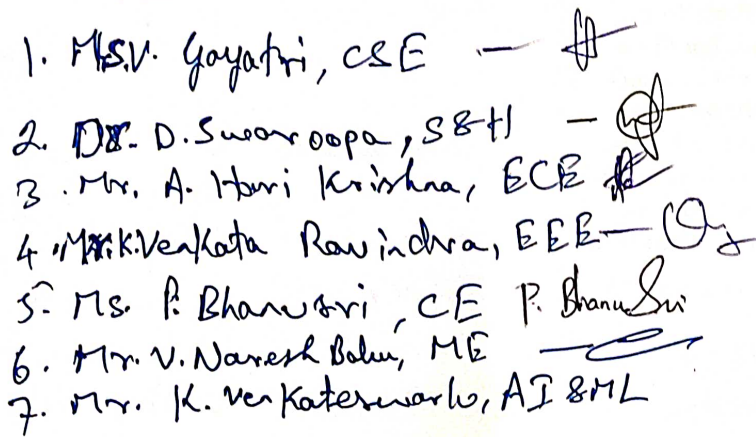 1. Ms.V. Gayatri, CSE -
2. Dr. D. Swaroopa, S&H -
3. Mr. A. Hari Krishna, ECE
4. Mr.K.Venkata Ravindra, EEE -
5. Ms. P. Bhanusri, CE P. BhanuSri
6. Mr. V. Naresh Babu, ME
7. Mr. K. Venkateswarlu, AI &ML